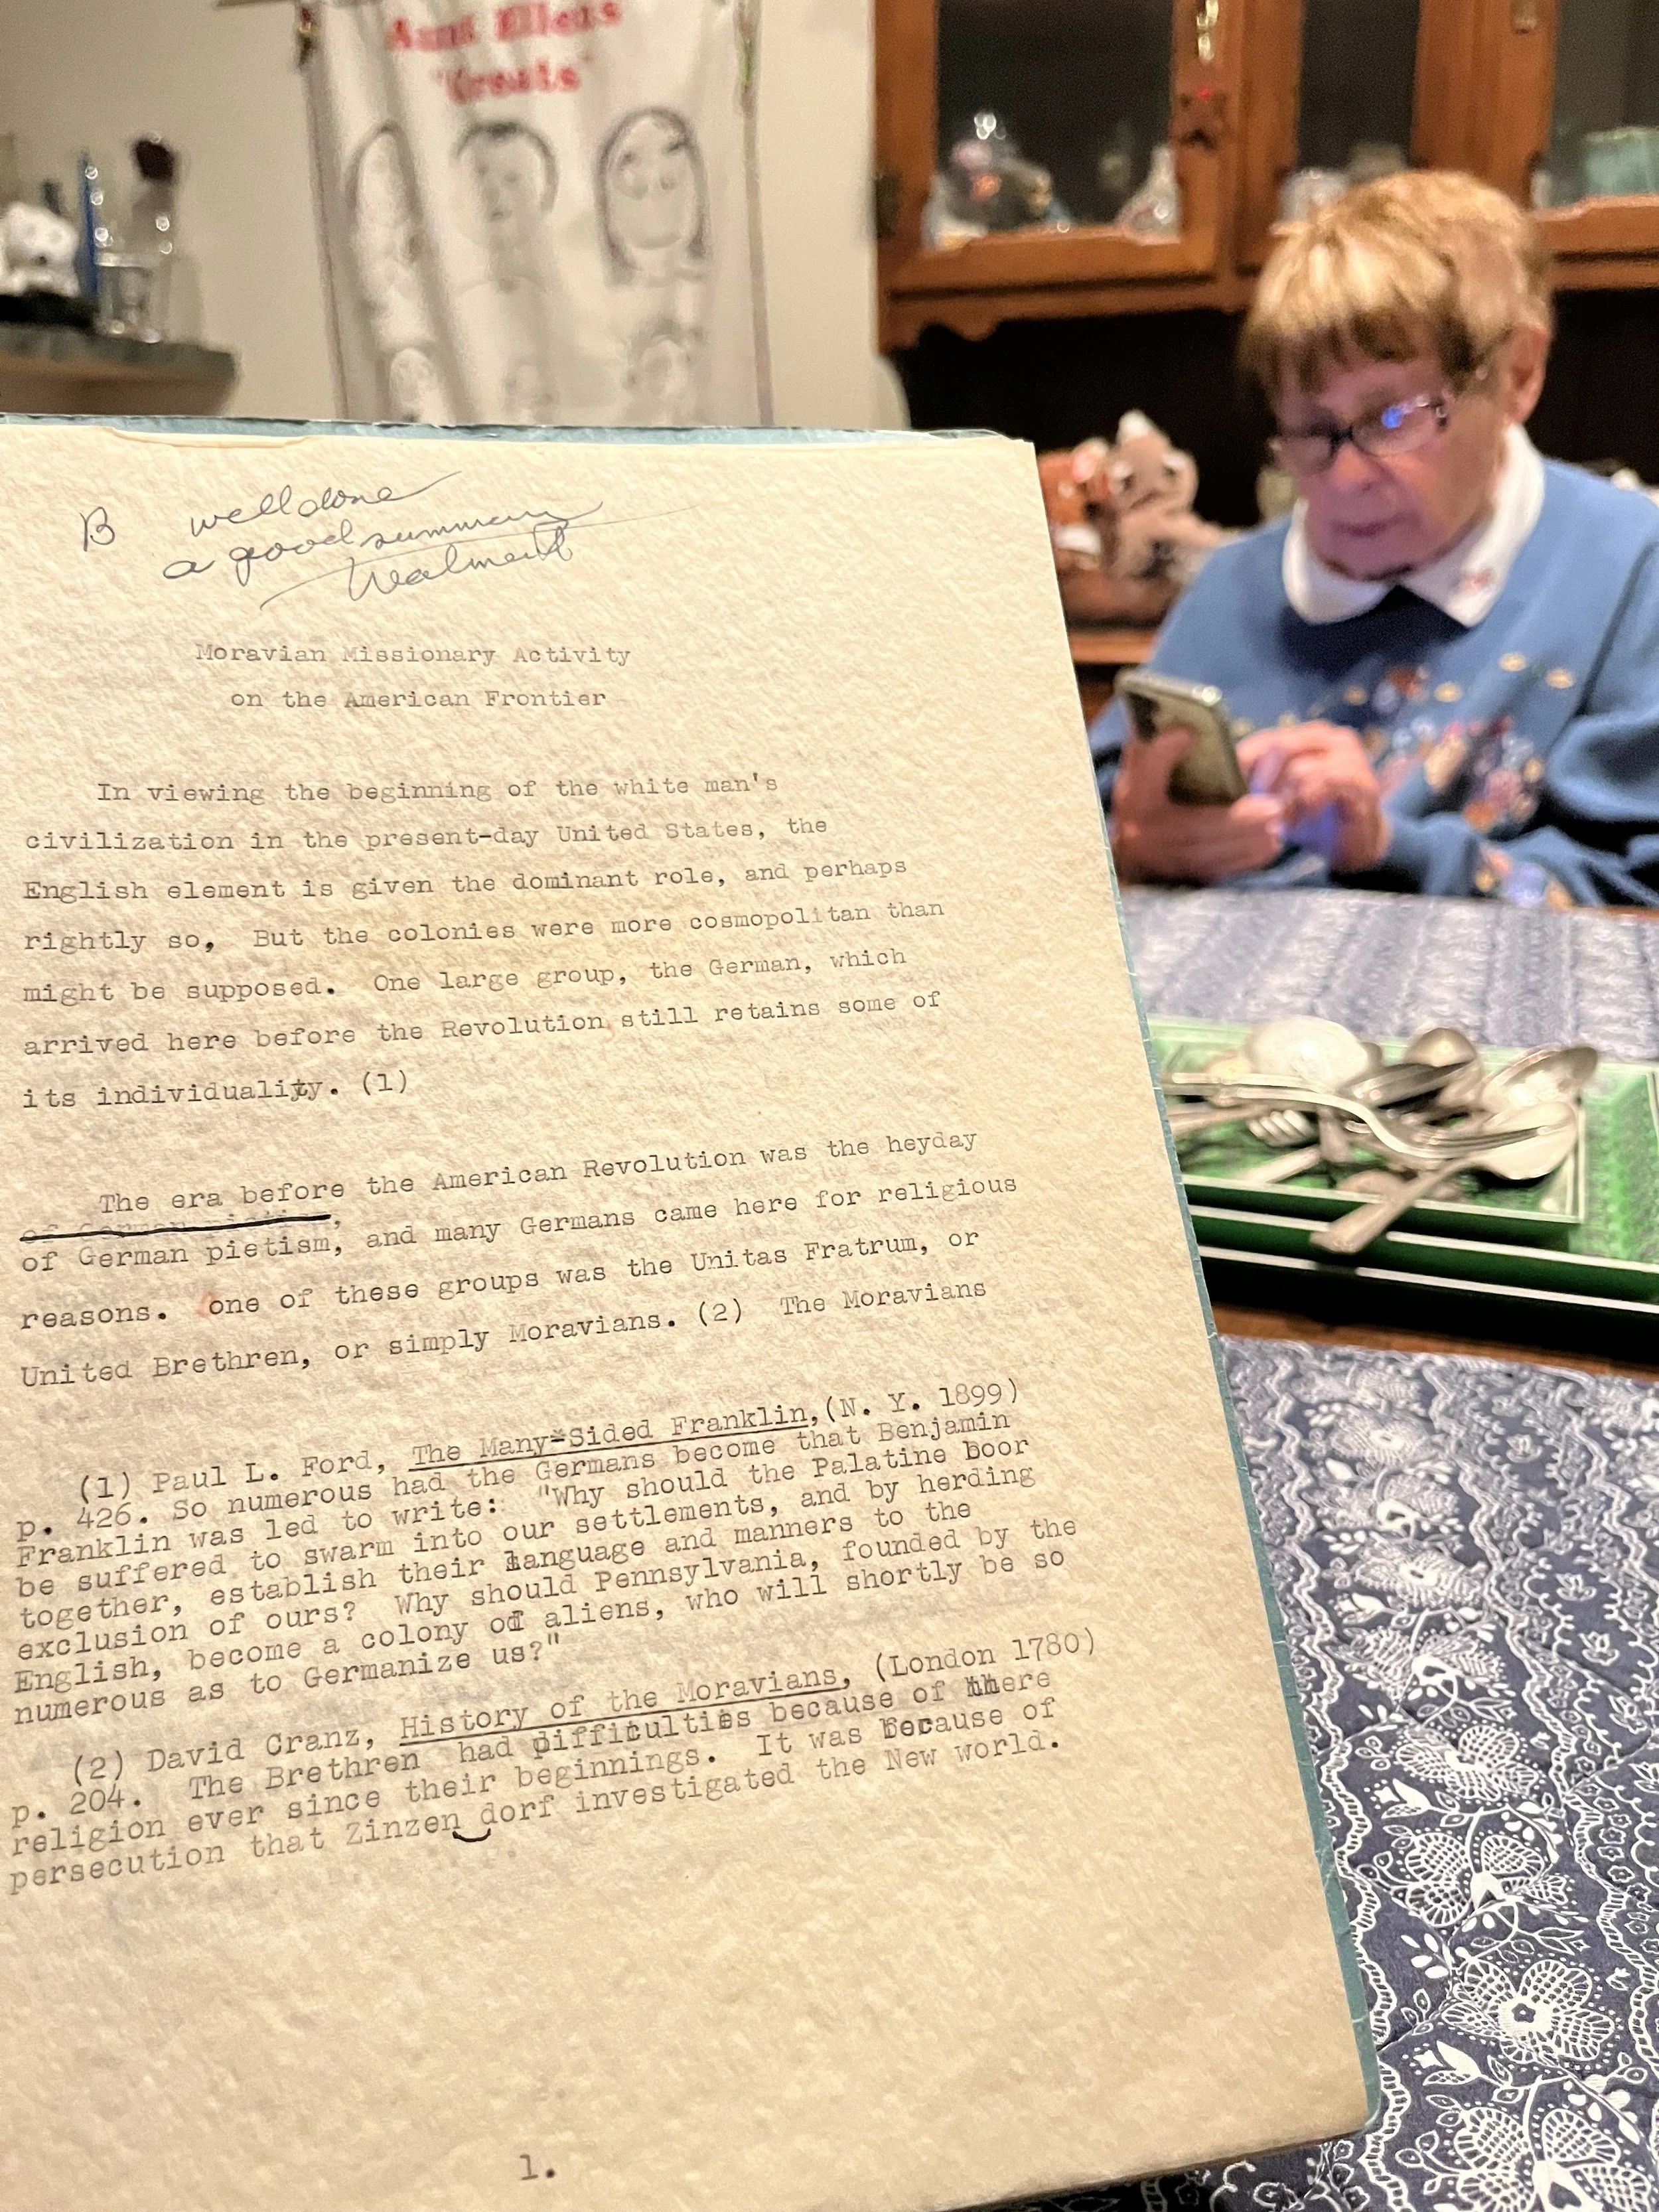 Aunt Ellens
"Greats"
B well done
a good summary
Moravian Missionary Activity
on the American Frontier
In viewing the beginning of the white man's
civilization in the present-day United States, the
English element is given the dominant role, and perhaps
rightly so, But the colonies were more cosmopolitan than
might be supposed. One large group, the German, which
arrived here before the Revolution still retains some of
its individuality. (1)
The era before the American Revolution was the heyday
of German pietism,
of German pietism, and many Germans came here for religious
reasons. one of these groups was the Unitas Fratrum, or
United Brethren, or simply Moravians. (2) The Moravians
(1) Paul L. Ford, The Many-Sided Franklin,(N. Y. 1899)
p. 426. So numerous had the Germans become that Benjamin
Franklin was led to write: "Why should the Palatine boor
be suffered to swarm into our settlements, and by herding
together, establish their language and manners to the
exclusion of ours? Why should Pennsylvania, founded by the
English, become a colony of aliens, who will shortly be so
numerous as to Germanize us?"
(2) David Cranz, History of the Moravians, (London 1780)
p. 204. The Brethren had difficulties because of there
religion ever since their beginnings. It was because of
persecution that Zinzen dorf investigated the New world.
1.